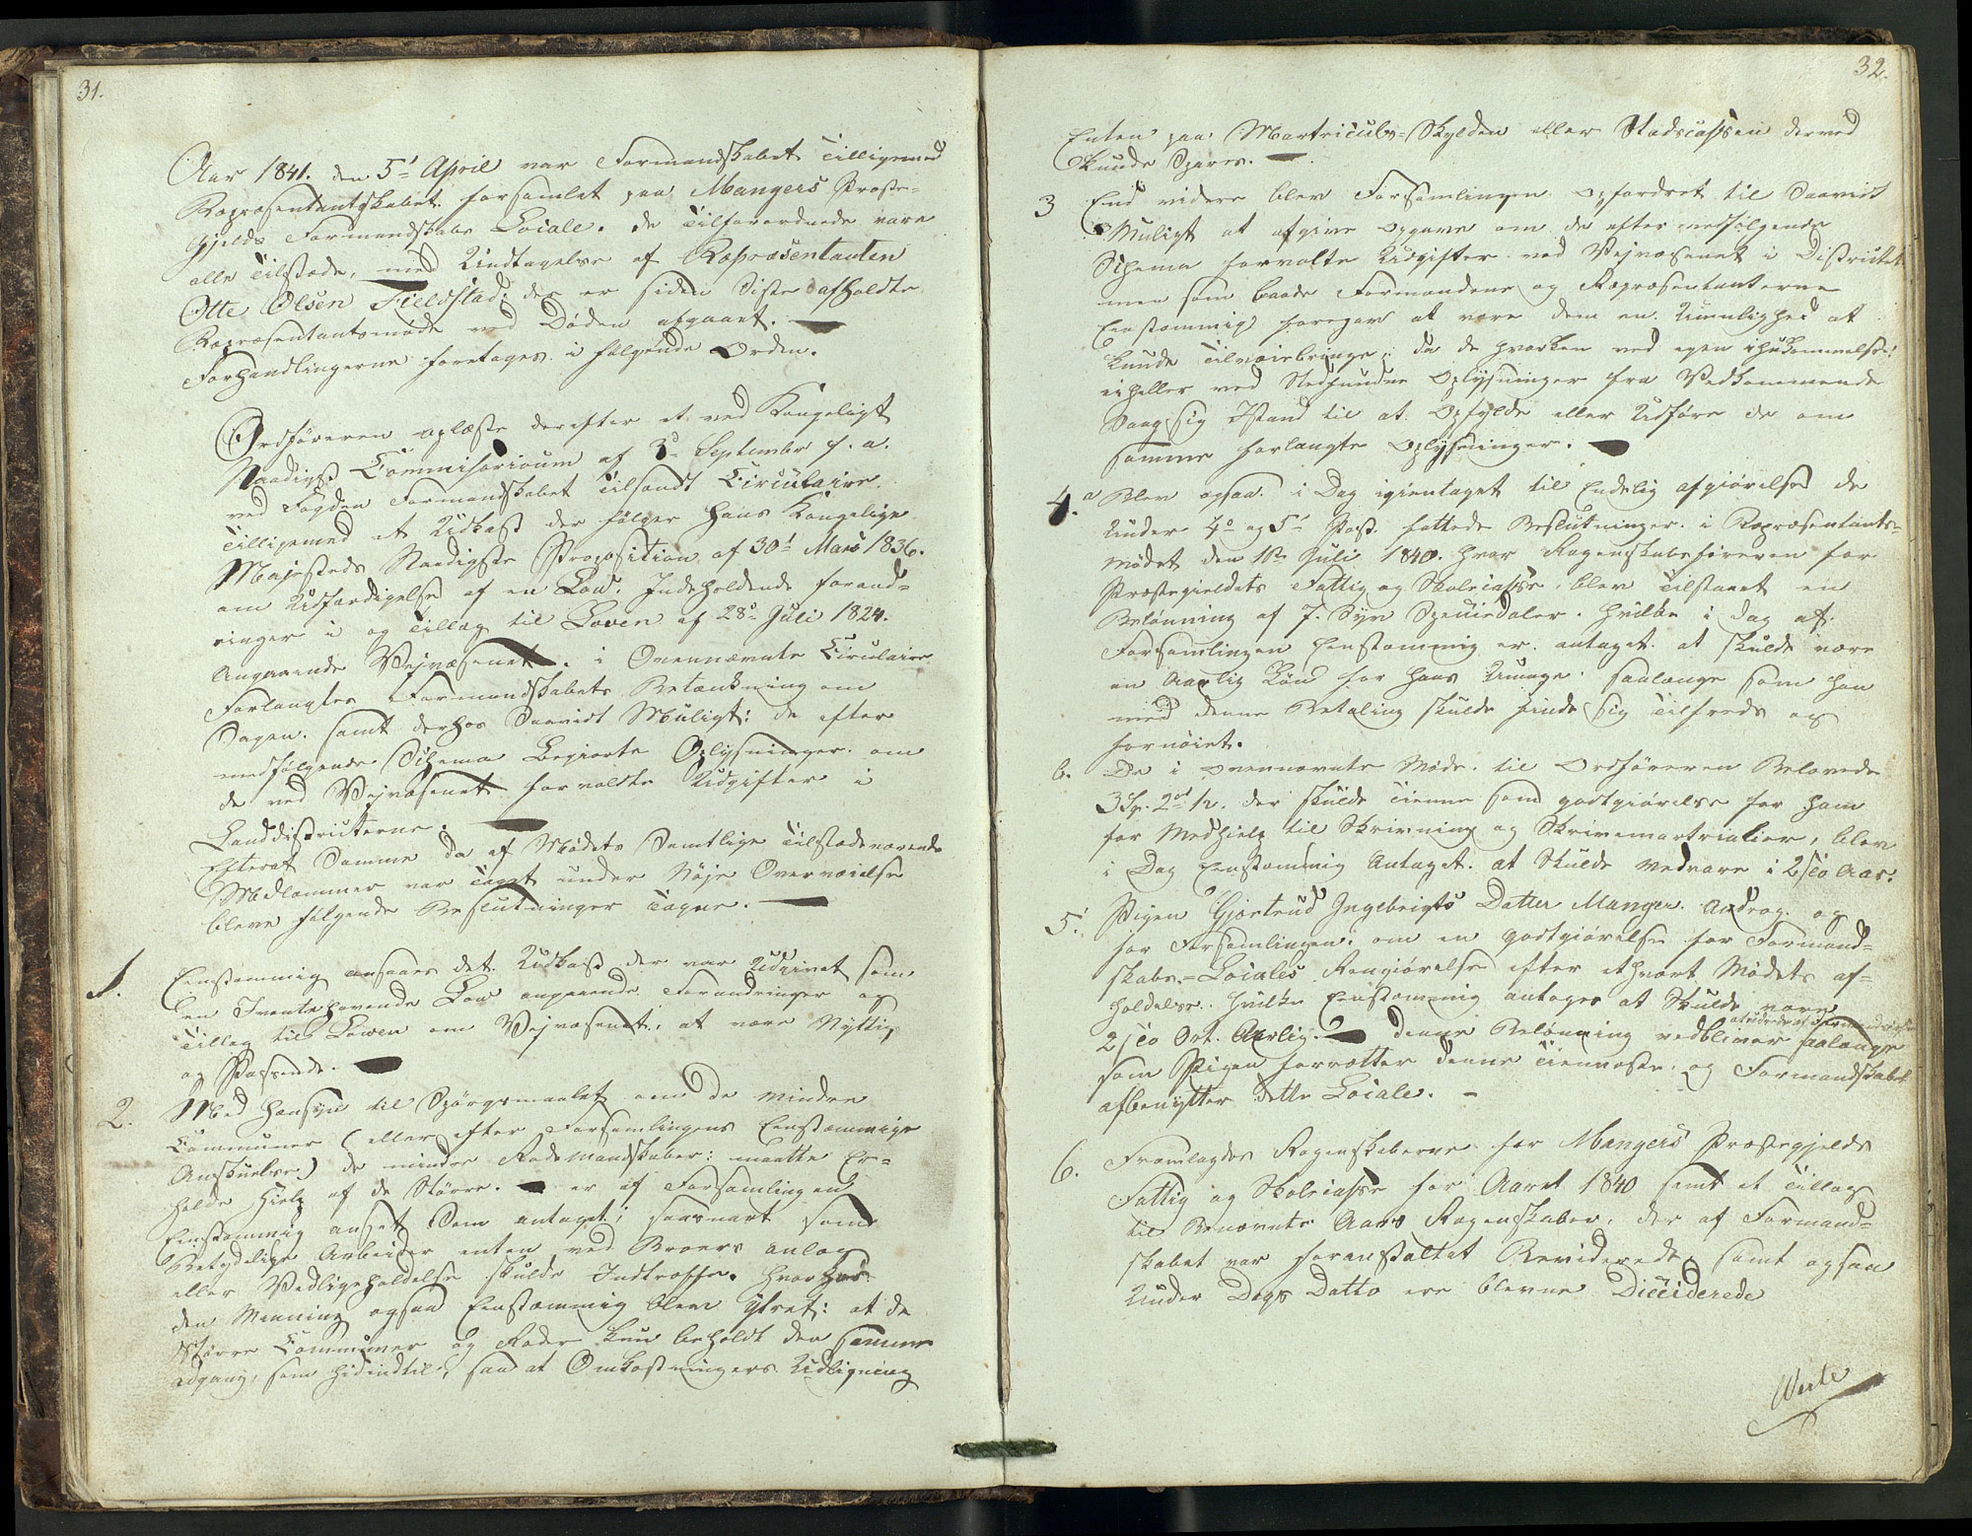 31.
Aar 1841. den 5te April var Formandskabet tilligemed
Repræsentantskabet forsamlet paa Mangers Præste-
gjelds Formandskabs Locale. de Tilforordnede vare
alle tilstæde, med Undtagelse af Repræsentanten
Otte Olsen Fieldstad; der er siden Siste afholdte
Repræsentantsmøde ved Døden afgaaet.
Forhandlingerne foretages i følgende Orden.
Ordføreren oplæste derefter et ved Kongeligt
Naadigst Commissorium af 3de September f. a.
ved Fogden Formandskabet tilsendt Circulaire
tilligemed et Udkast der følger Hans Kongelige
Majestæds Naadigste Proposition af 30te Mars 1836.
om Udfærdigelse af en Lov, Indeholdende forand-
ringer i og tillæg til Loven af 28de Juli 1824.
Angaaende Vejvæsenet. i Ovennævnte Circulaire
Forlanges Formandskabets Betænkning om
Sagen. samt derhos Saavidt Muligt: de efter
medfølgende Schema Begjærte Oplysninger om
de ved Vejvæsenet forvoldte Udgifter i
Landdistricterne.
Efterat Samme da af Mødets Samtlige tilstædeværende
Medlemmer var taget under Nøje Overveielse
bleve følgende Beslutninger tagne.
1. Eenstemmig ansaaes det Udkast der var Udgivet som
en Ivæntehavende Lov angaaende Forandringer og
tillæg til Loven om Vejvæsenet, at være Nyttig
og Passende.
2. Med Hensyn til Spørgsmaalet om de mindre
Communer (eller efter Forsamlingens Eenstemmige
Anskuelse) de mindre Rodemandskaber: maatte Er-
holde Hjelp af de Større. er af Forsamlingen
Eenstemmig anseet Som antaget; saasnart som
Betydelige Arbeider enten ved Broers anlæg
eller Vedligeholdelse skulde Indtræffe. hvorhos
den Meening ogsaa Eenstemmig blev ytret: at de
Større Communer og Roder kun beholdt den samme
adgang, som hidindtil, saa at Omkostningers Udligning
32.
Enten paa Martriculs-Skylden eller Stadscassen derved
Kunde Spares.
3 End videre blev Forsamlingen opfordret til Saavidt
Muligt at afgive opgave om de efter medfølgende
Schema forvolte Udgifter ved Vejvæsenet i Districtet
men som baade Formændene og Repræsentanterne
Eenstemmig foregav at være dem en Umulighed at
kunde tilveiebringe; da de hverken ved egen ihukommelse
eiheller ved Stedfundne Oplysninger fra Vedkommende
Saag sig Istand til at Opfylde eller Udføre de om
samme forlangte Oplysninger.
4. a Blev ogsaa i Dag igientaget til Endelig afgiørelse de
Under 4de og 5te Post fattede Beslutninger i Repræsentants-
mødet den 1ste Juli 1840. hvor Regenskabsføreren for
Præstegieldets Fattig og Skolecasse, blev tilstaaet en
Belønning af 7. Syv Speciedaler. hvilke i dag af
Forsamlingen Eenstemmig er antaget at skulde være
en Aarlig Løn for hans Umage. saalænge som han
med denne Betaling skulde finde sig tilfreds og
fornøiet.
b. De i ovennævnte Møde til Ordføreren Belovede
3 Sp. 2 ort /2. der skulde tienne som godtgiørelse for ham
for Medhielp til Skrivning og Skrivemartrialier, blev
i Dag Eenstemmig Antaget. at Skulde Vedvare i 2/to Aar.
5. Pigen Giertrud Ingebrigts Datter Manger. Androg og
for Forsamlingen: om en godtgiørelse for Formand-
skabs-Locales Rengiørelse efter ethvert Mødets af-
holdelse. hvilke Eenstemmig antages at Skulde være
2/to Ort. Aarlig. denne Belønning vedbliver saalænge
som Pigen forretter denne tienneste. og Formandskabet
afbenytter dette Locale.
6. Fremlagdes Regenskaberne for Mangers Præstegjelds
Fattig og Skolecasse for Aaret 1840 samt et tillæg
til Benævnte Aars Regenskaber, der af Formand-
skabet var foranstaltet Reviderede samt ogsaa
Under Dags Datto ere blevne Diciderede